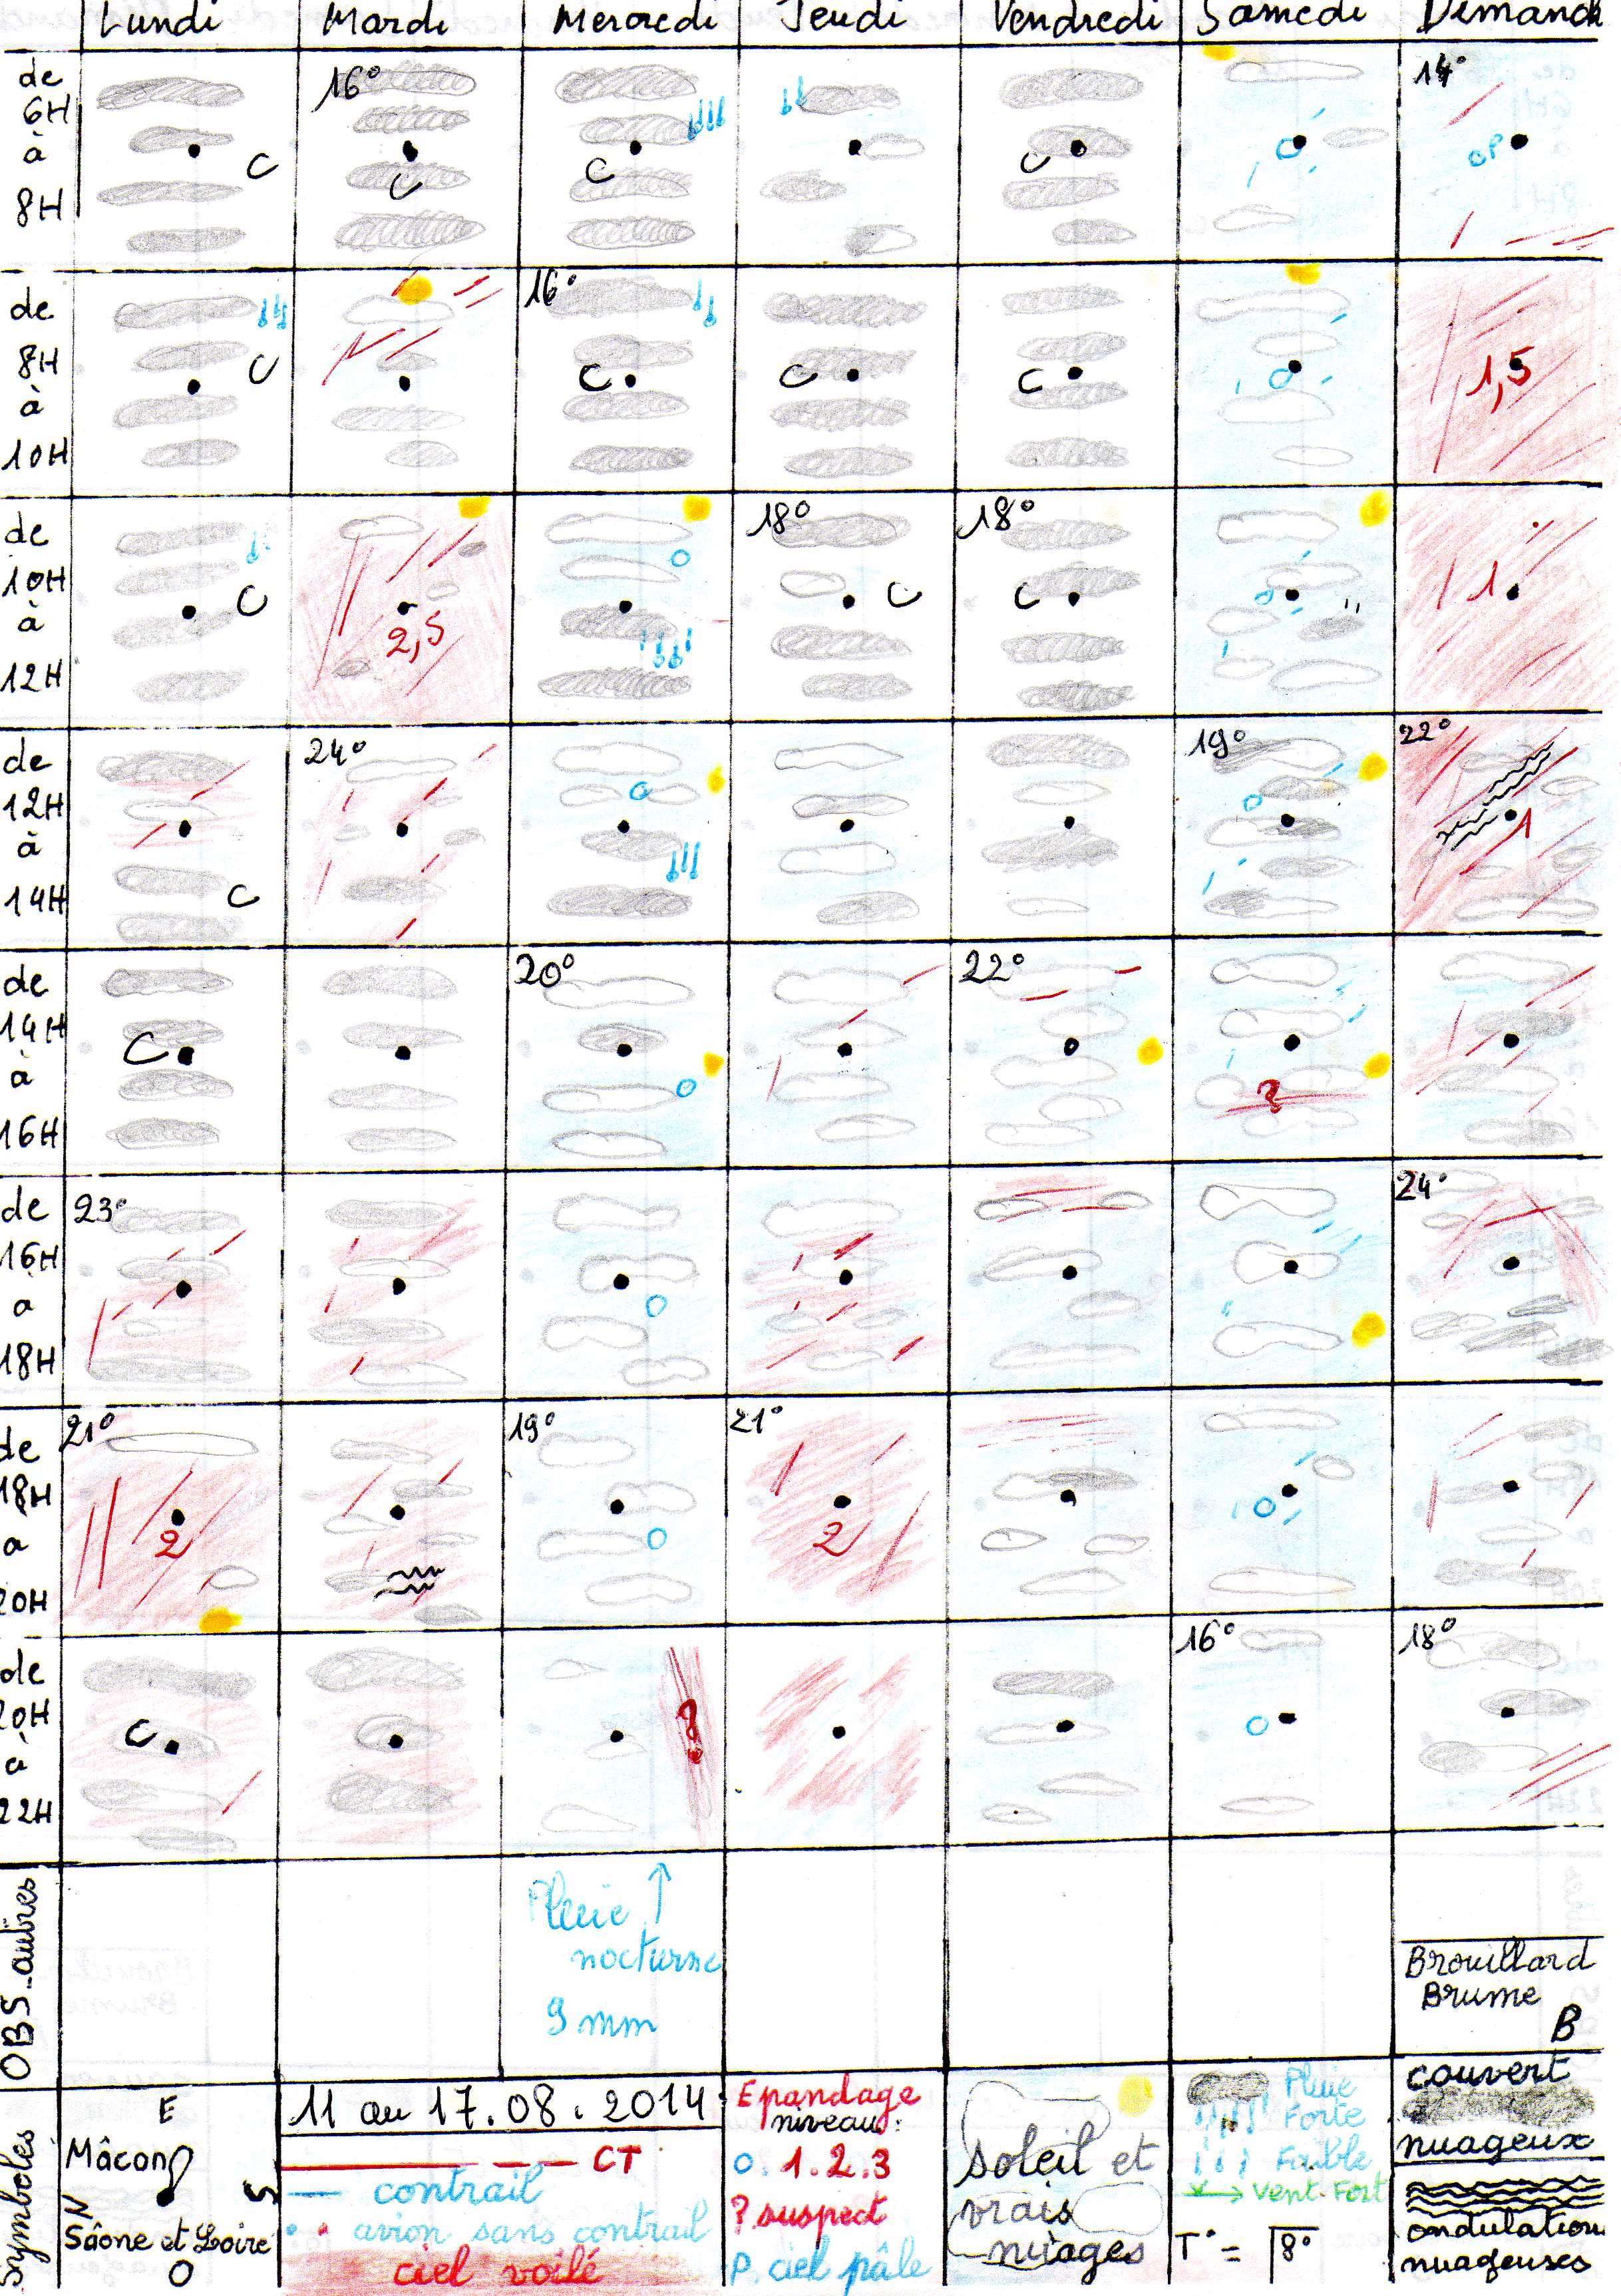 Lundi Mardi Mercredi Jeudi Vendredi Samedi Dimanch
de 6H à 8H
16°
C
C
C
C
14°
OP
de 8H à 10H
C
16°
C
C
C
1,5
de 10H à 12H
C
2,5
18°
C
18°
C
1
de 12H à 14H
C
24°
19°
22°
1
de 14H à 16H
C
20°
22°
?
de 16H a 18H
23°
24°
de 18H a 20H
21°
2
19°
21°
2
de 20H à 22H
C
?
16°
18°
OBS. autres
Pluie
nocturne
9 mm
Brouillard
Brume
B
Symboles
E
Mâcon
N
S
Saône et Loire
O
11 au 17.08.2014
CT
contrail
avion sans contrail
ciel voilé
Epandage
niveau:
0. 1. 2. 3
? suspect
P. ciel pâle
soleil et
vrais
nuages
Pluie
Forte
Faible
Vent Fort
T° = 8°
couvert
nuageux
ondulation
nuageuses